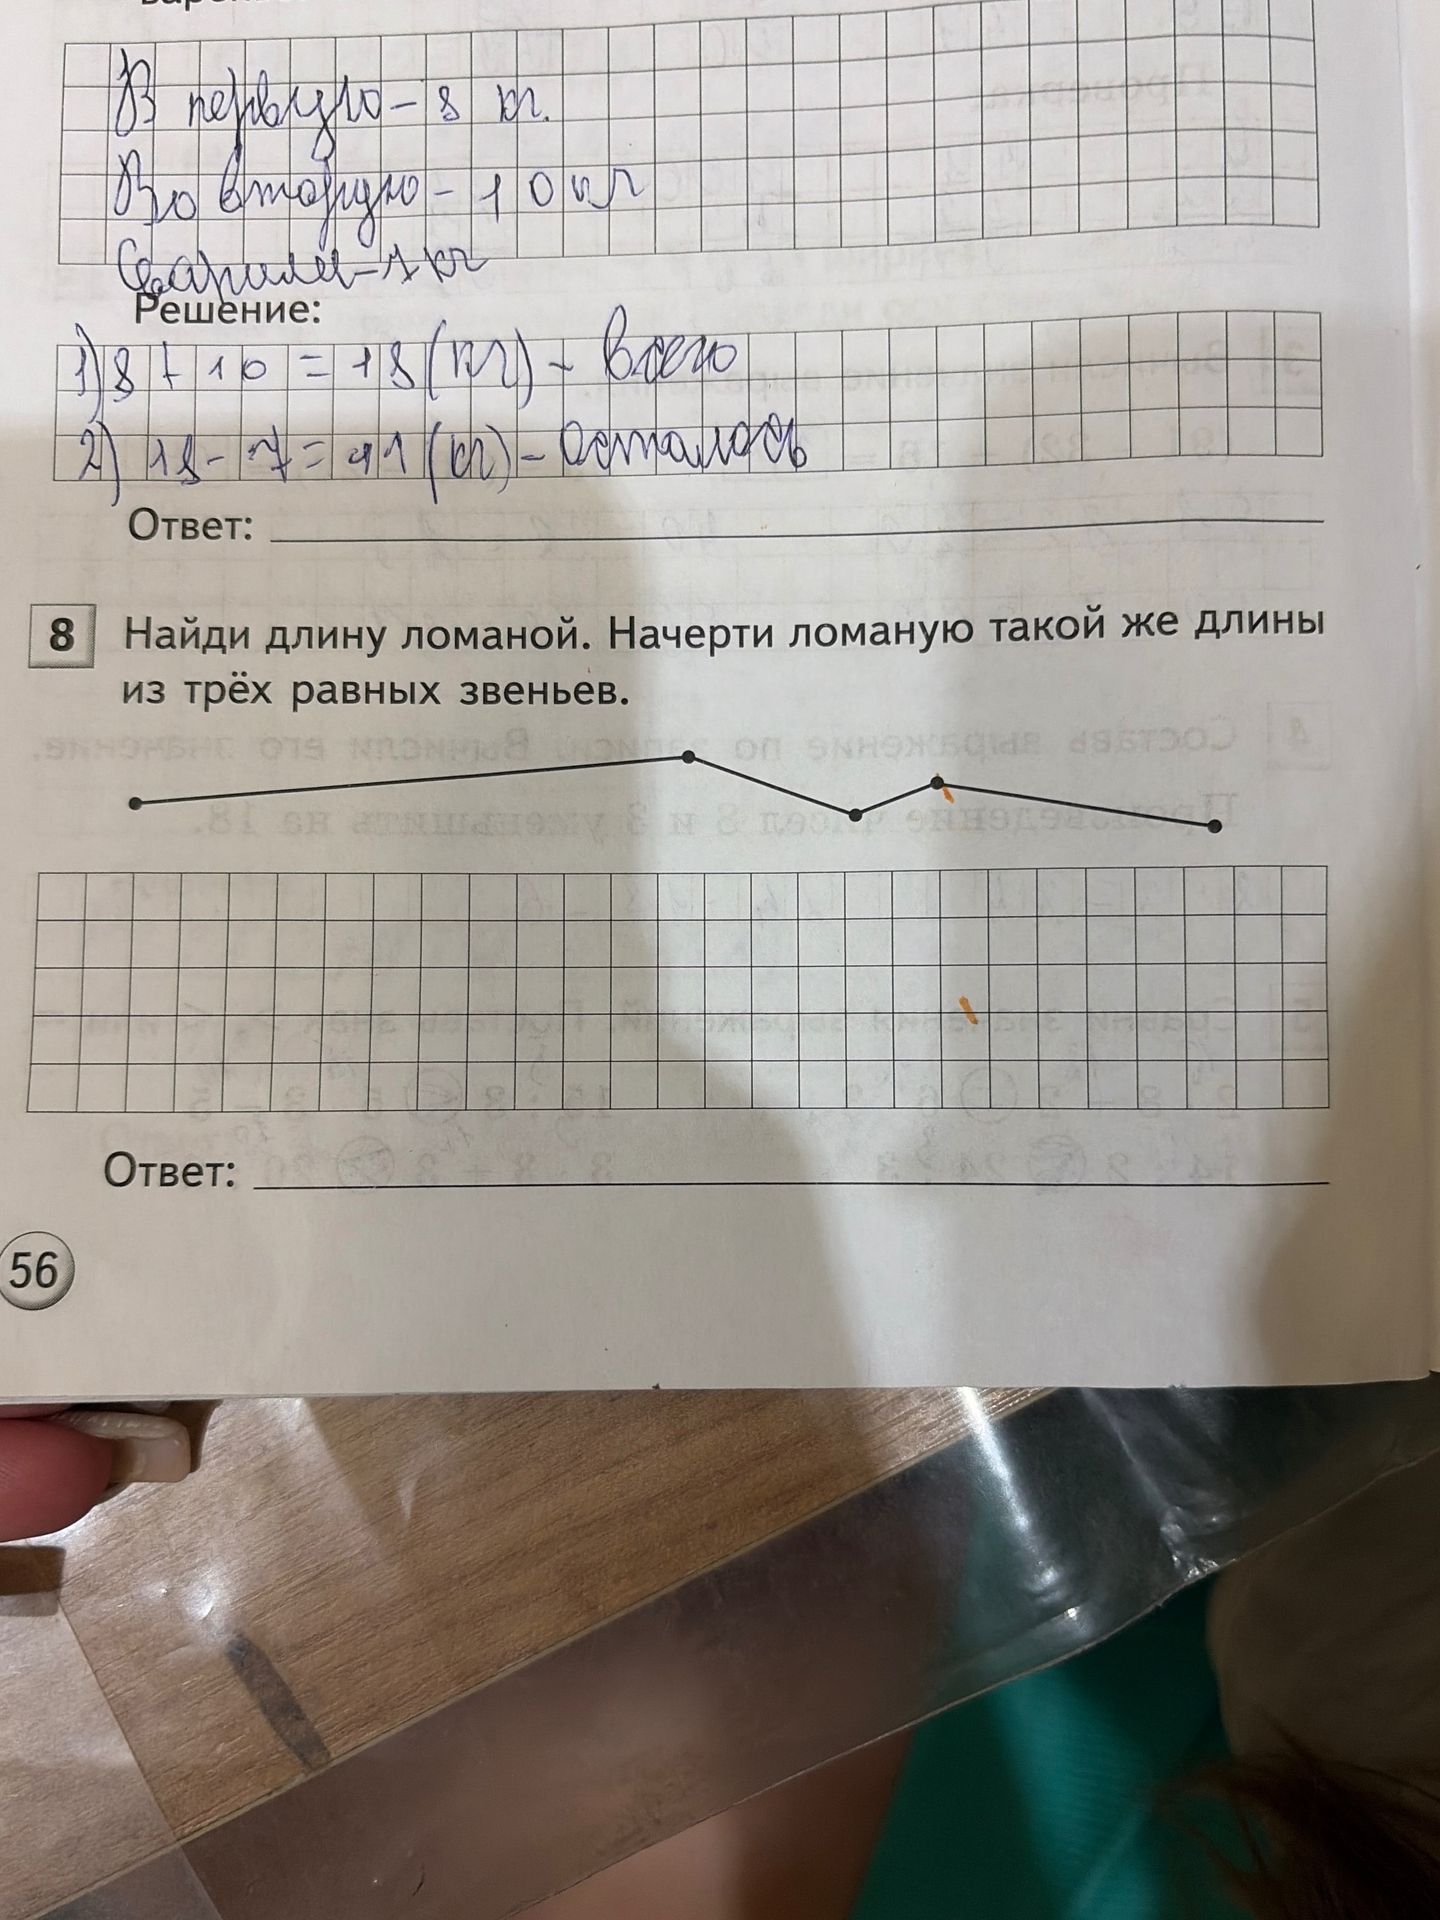 В первую - 8 кг.
Во вторую - 10 кг
Сварили - 7 кг
Решение:
1) 8 + 10 = 18 (кг) - всего
2) 18 - 7 = 11 (кг) - осталось
Ответ:
8 Найди длину ломаной. Начерти ломаную такой же длины
из трёх равных звеньев.
Ответ:
56